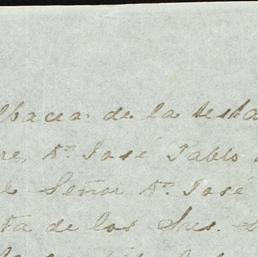 lbacea de la testa
re, Dn. José Pablo
el Señor Dn. José
ta de los Sres.